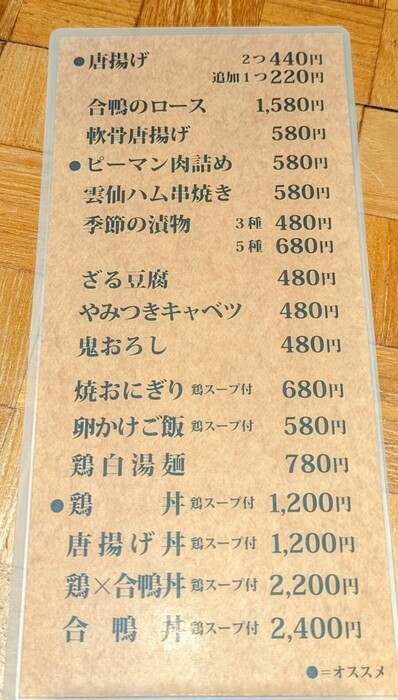 ●唐揚げ 2つ 440円
追加1つ 220円
合鴨のロース 1,580円
軟骨唐揚げ 580円
●ピーマン肉詰め 580円
雲仙ハム串焼き 580円
季節の漬物 3種 480円
5種 680円
ざる豆腐 480円
やみつきキャベツ 480円
鬼おろし 480円
焼おにぎり 鶏スープ付 680円
卵かけご飯 鶏スープ付 580円
鶏白湯麺 780円
●鶏丼 鶏スープ付 1,200円
唐揚げ丼 鶏スープ付 1,200円
鶏×合鴨丼 鶏スープ付 2,200円
合鴨丼 鶏スープ付 2,400円
●=オススメ